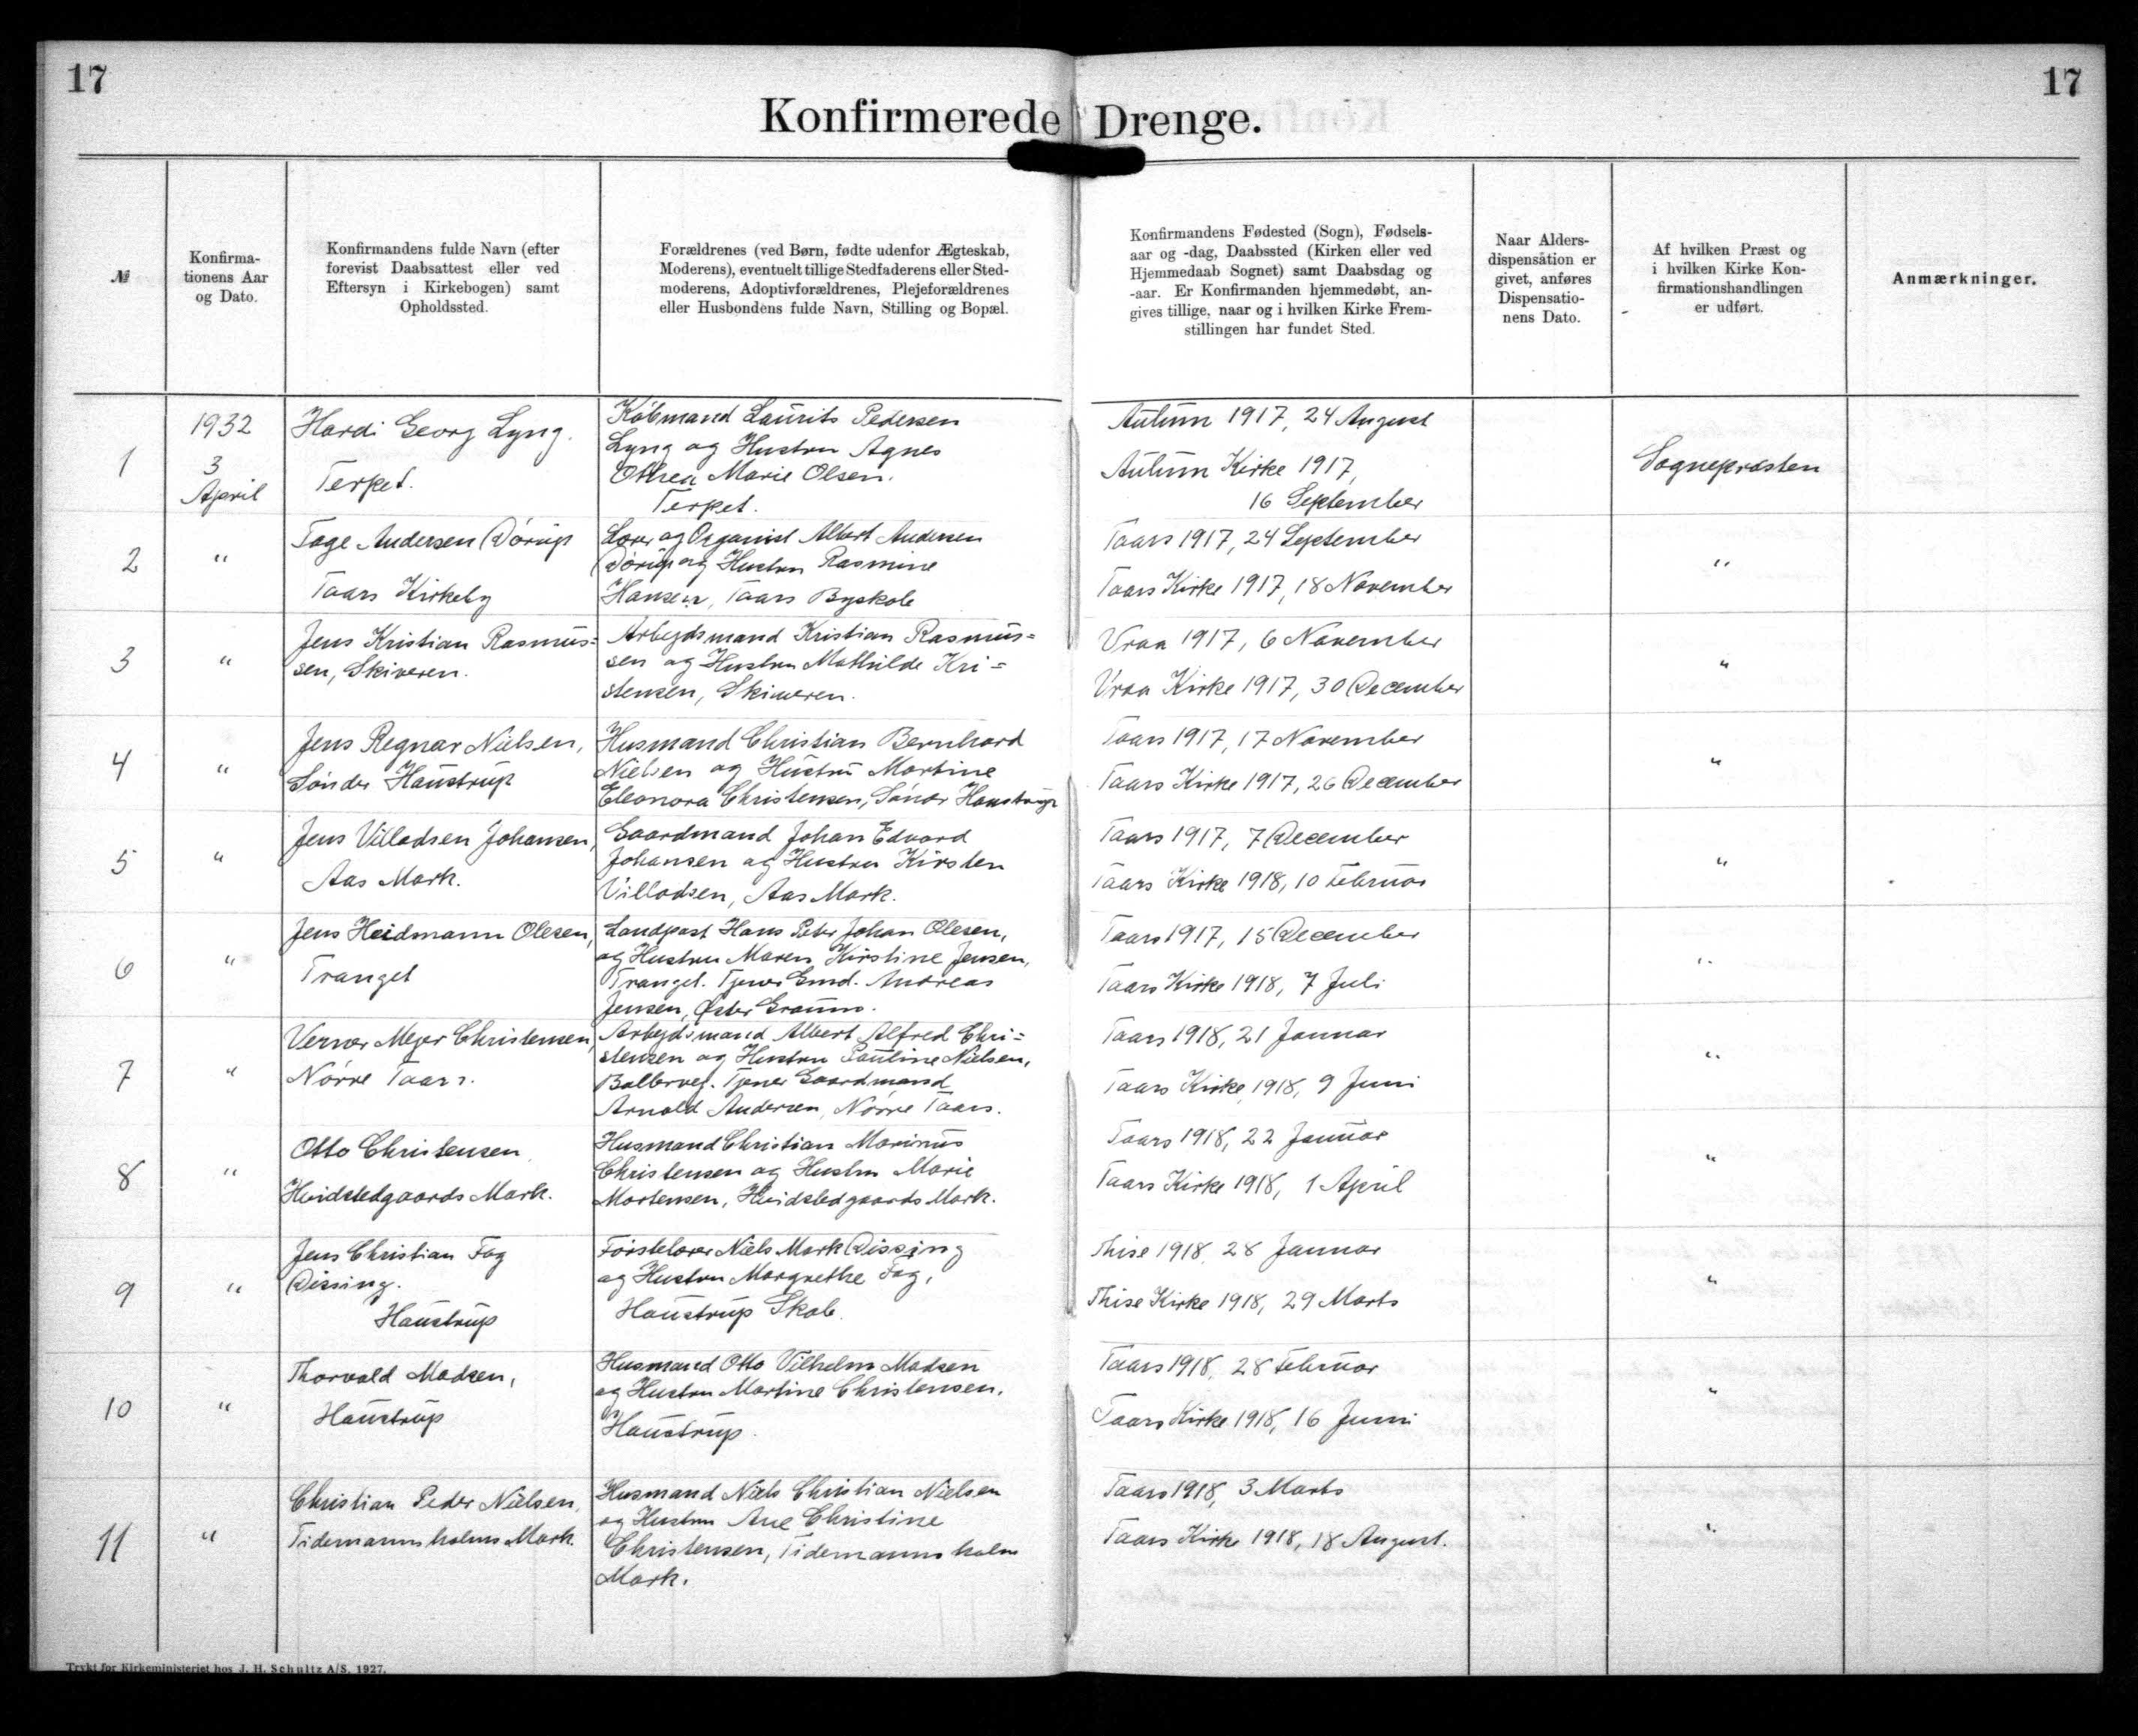 17
17
Konfirmerede Drenge.
№
Konfirma-
tionens Aar
og Dato.
Konfirmandens fulde Navn (efter
forevist Daabsattest eller ved
Eftersyn i Kirkebogen) samt
Opholdssted.
Forældrenes (ved Børn, fødte udenfor Ægteskab,
Moderens), eventuelt tillige Stedfaderens eller Sted-
moderens, Adoptivforældrenes, Plejeforældrenes
eller Husbondens fulde Navn, Stilling og Bopæl.
Konfirmandens Fødested (Sogn), Fødsels-
aar og -dag, Daabssted (Kirken eller ved
Hjemmedaab Sognet) samt Daabsdag og
-aar. Er Konfirmanden hjemmedøbt, an-
gives tillige, naar og i hvilken Kirke Frem-
stillingen har fundet Sted.
Naar Alders-
dispensation er
givet, anføres
Dispensatio-
nens Dato.
Af hvilken Præst og
i hvilken Kirke Kon-
firmationshandlingen
er udført.
Anmærkninger.
1
1932
3
April
Hardi Georg Lyng.
Terpet.
Købmand Laurits Pedersen
Lyng og Hustru Agnes
Othea Marie Olsen.
Terpet.
Autum 1917, 24 August
Autum Kirke 1917,
16 September
Sognepræsten
2
"
Tage Andersen Dørup
Taars Kirkeby
Lærer og Organist Albert Andersen
Dørup og Hustru Rasmine
Hansen, Taars Byskole
Taars 1917, 24 September
Taars Kirke 1917, 18 November
"
3
"
Jens Kristian Rasmus=
sen, Skiveren.
Arbejdsmand Kristian Rasmus=
sen og Hustru Mathilde Kri=
stensen, Skiveren.
Vraa 1917, 6 November
Vraa Kirke 1917, 30 December
"
4
"
Jens Regnar Nielsen,
Sønder Haustrup
Husmand Christian Bernhard
Nielsen og Hustru Martine
Eleonora Christensen, Sønder Haustrup
Taars 1917, 17 November
Taars Kirke 1917, 26 December
"
5
"
Jens Villadsen Johansen,
Aas Mark.
Gaardmand Johan Edvard
Johansen og Hustru Kirsten
Villadsen, Aas Mark.
Taars 1917, 7 December
Taars Kirke 1918, 10 Februar
"
6
"
Jens Heidmann Olesen,
Tranget
Landpost Hans Peter Johan Olesen,
og Hustru Maren Kirstine Jensen,
Tranget. Tjener Gmd. Andreas
Jensen, Øster
Taars 1917, 15 December
Taars Kirke 1918, 7 Juli
"
7
"
Verner Mejer Christensen,
Nørre Taars.
Arbejdsmand Albert Alfred Chri=
stensen og Hustru Pauline Nielsen,
Tjener Gaardmand
Arnold Andersen, Nørre Taars.
Taars 1918, 21 Januar
Taars Kirke 1918, 9 Juni
"
8
"
Otto Christensen
Hvidstedgaards Mark.
Husmand Christian Marinus
Christensen og Hustru Marie
Mortensen, Hvidstedgaards Mark.
Taars 1918, 22 Januar
Taars Kirke 1918, 1 April
"
9
"
Jens Christian Fog
Dissing.
Haustrup
Førstelærer Niels Mark Dissing
og Hustru Margrethe Fog,
Haustrup Skole.
Thise 1918, 28 Januar
Thise Kirke 1918, 29 Marts
"
10
"
Thorvald Madsen,
Haustrup
Husmand Otto Vilhelm Madsen
og Hustru Martine Christensen,
Haustrup.
Taars 1918, 28 Februar
Taars Kirke 1918, 16 Juni
"
11
"
Christian Peder Nielsen,
Tidemannsholms Mark.
Husmand Niels Christian Nielsen
og Hustru Ane Christine
Christensen, Tidemannsholm
Mark.
Taars 1918, 3 Marts
Taars Kirke 1918, 18 August.
"
Trykt for Kirkeministeriet hos J. H. Schultz A/S. 1927.